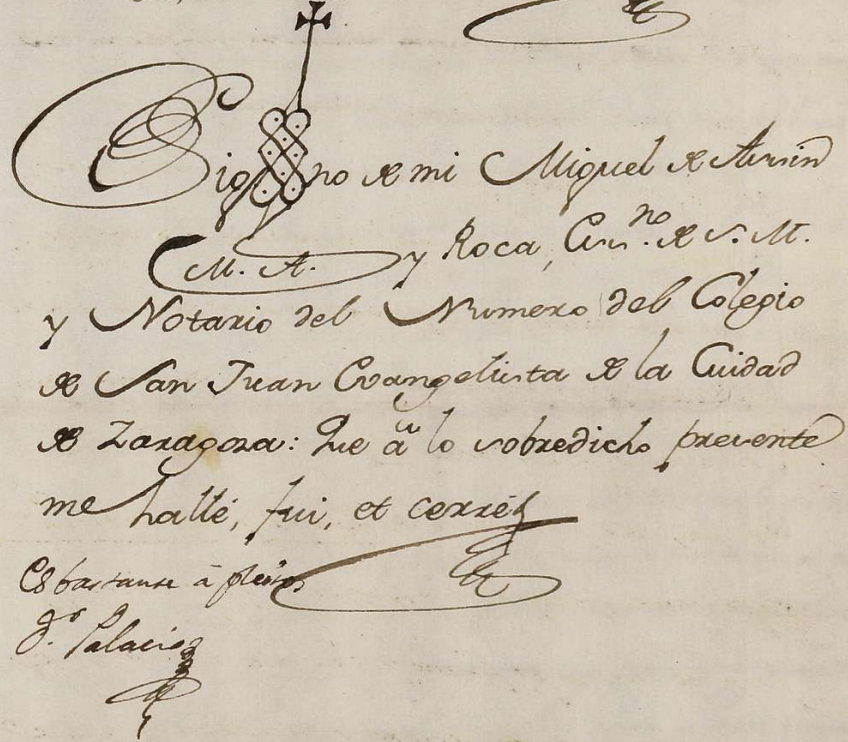 Signo de mi Miguel de Assin
M. A. y Roca, Ess.no de S. M.
y Notario del Numero del Colegio
de San Juan Evangelista de la Cuidad
de Zaragoza: Que â lo sobredicho presente
me hallé, fui, et cerré
Es bastante â pleitos
Palacio